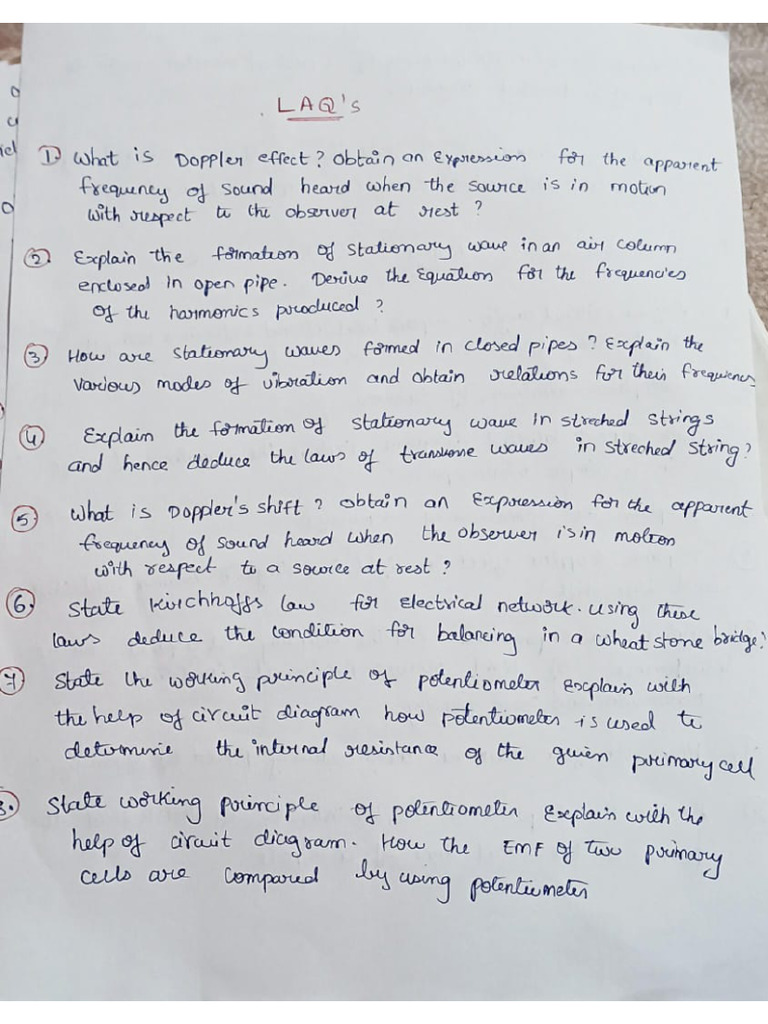 LAQ's
1. What is Doppler effect? Obtain an Expression for the apparent
frequency of sound heard when the source is in motion
with respect to the observer at rest?
2. Explain the formation of stationary wave in an air column
enclosed in open pipe. Derive the Equation for the frequencies
of the harmonics produced?
3 How are stationary waves formed in closed pipes? Explain the
various modes of vibration and obtain relations for their frequiencs
4 Explain the formation of stationary wave in streched strings
and hence deduce the laws of transverse waves in streched string?
5 What is Doppler's shift? Obtain an Expression for the apparent
frequency of sound heard when the observer is in motion
with respect to a source at rest?
6. State Kirchhoffs law for electrical network. Using these
laws deduce the condition for balancing in a wheat stone bridge?
7 State the working principle of potentiometer explain with
the help of circuit diagram how potentiometer is used to
determine the internal resistance of the given primary cell
8. State working principle of potentiometer Explain with the
help of circuit diagram. How the EMF of two primary
cells are compared by using potentiometer